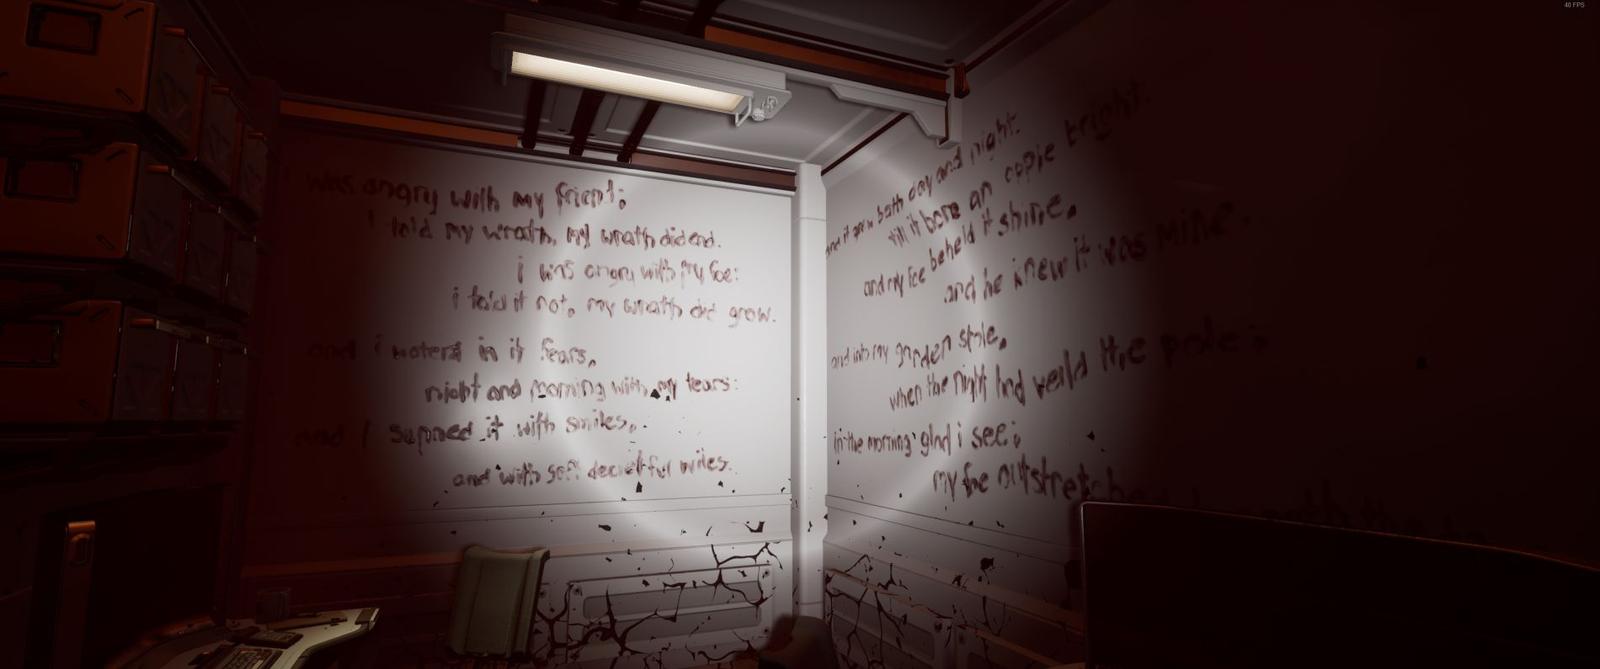 40 FPS
i was angry with my friend;
i told my wrath, my wrath did end.
i was angry with my foe:
i told it not, my wrath did grow.
and i waterd in it fears,
night and morning with my tears:
and i sunned it with smiles,
and with soft deceitful wiles.
and it grew both day and night.
till it bore an apple bright.
and my foe beheld it shine,
and he knew it was mine.
and into my garden stole,
when the night had veild the pole;
in the morning glad i see;
my foe outstretched beneath the